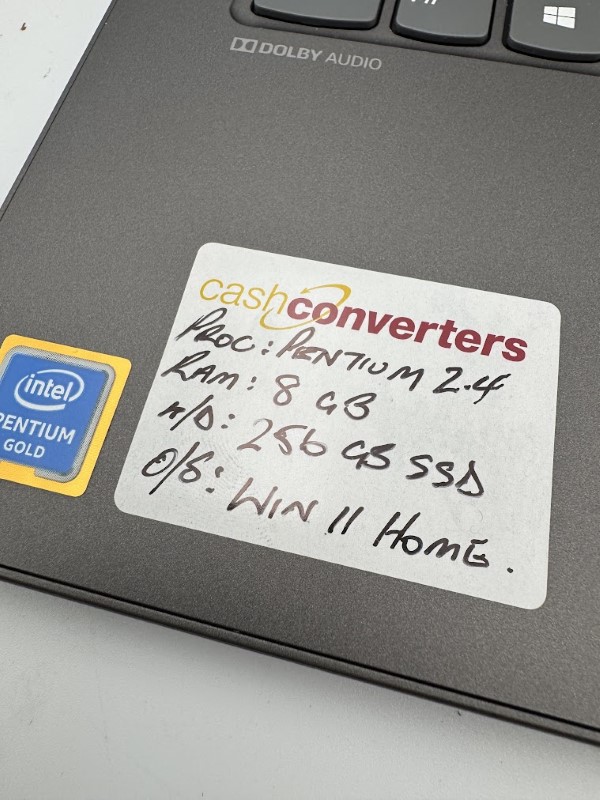 DOLBY AUDIO
cashconverters
PROC: PENTIUM 2.4
RAM: 8 GB
H/D: 256 GB SSD
O/S: WIN 11 HOME.
intel
PENTIUM
GOLD